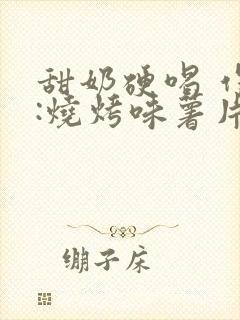 甜奶硬唱
:燒烤味薯片
绷子床